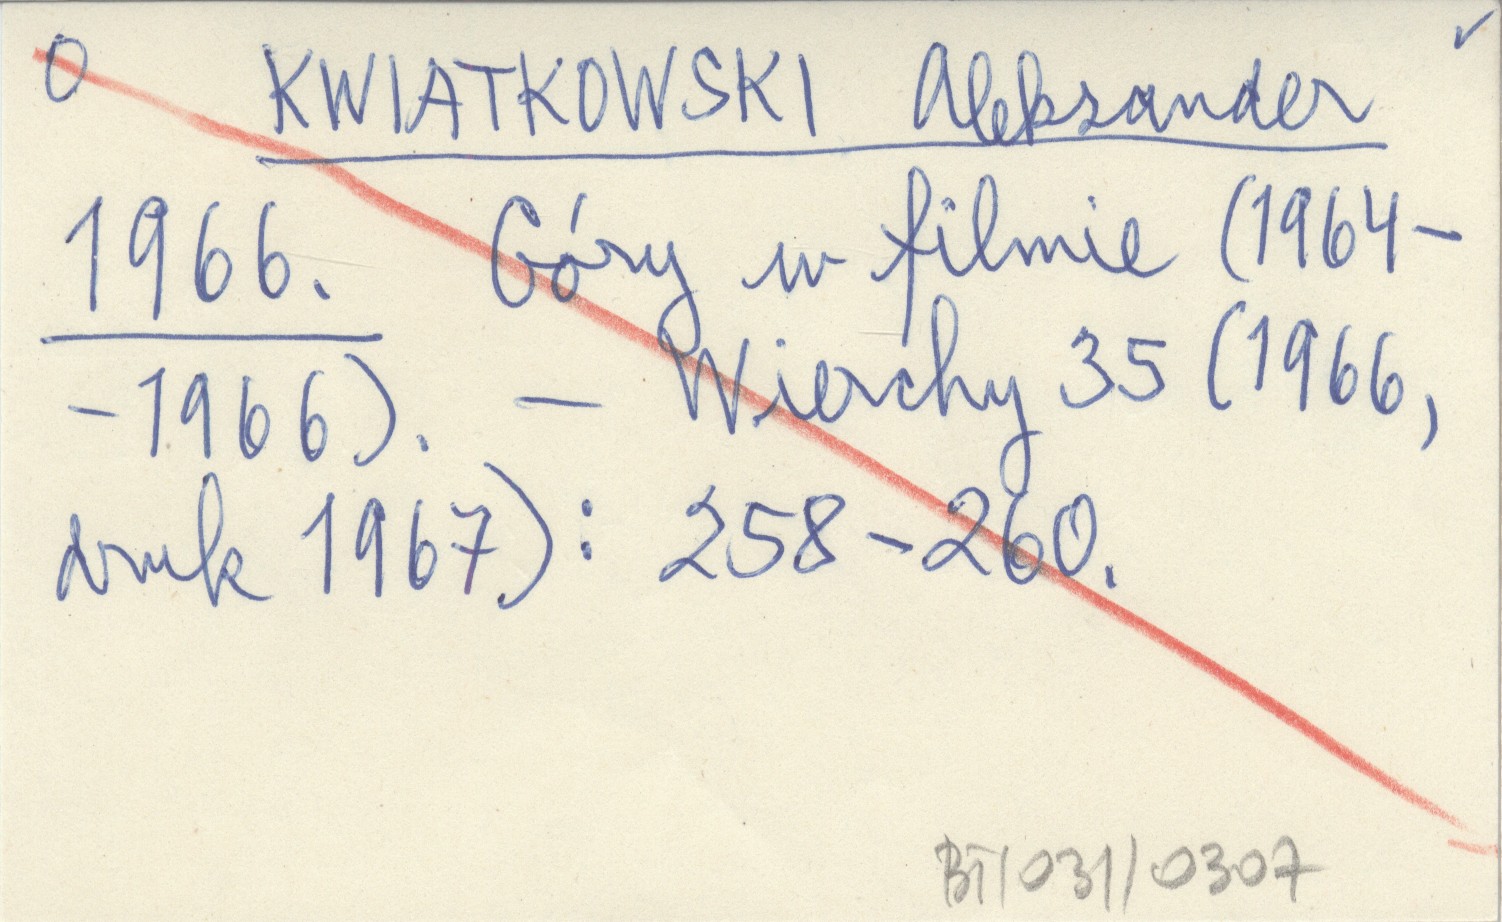 O KWIATKOWSKI Aleksander ✓
1966. Góry w filmie (1964-
-1966). — Wierchy 35 (1966,
druk 1967): 258-260.
BT/031/0307